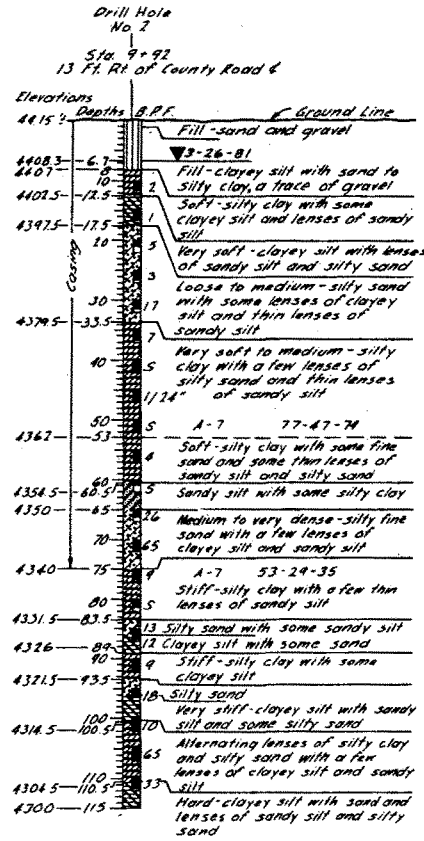 Drill Hole
No 2
Sta. 9+92
13 Ft. Rt. of County Road ¢
Elevations
Depths B.P.F.
Ground Line
4415
Fill-sand and gravel
3-26-81
4408.3 6.7
4407 8
Fill-clayey silt with sand to
silty clay, a trace of gravel
10
2
4402.5 12.5
Soft-silty clay with some
clayey silt and lenses of sandy
silt
1
4397.5 17.5
Very soft-clayey silt with lenses
of sandy silt and silty sand
20
5
Casing
3
Loose to medium-silty sand
with some lenses of clayey
silt and thin lenses of
sandy silt
30
17
4379.5 33.5
7
Very soft to medium-silty
clay with a few lenses of
silty sand and thin lenses
of sandy silt
40
5
1/24"
50
5 A-7 77-47-79
4362 53
4
Soft-silty clay with some fine
sand and some thin lenses of
sandy silt and silty sand
60
4354.5 60.5
5
Sandy silt with some silty clay
4350 65
26
Medium to very dense-silty fine
sand with a few lenses of
clayey silt and sandy silt
70
65
4340 75
9 A-7 53-29-35
Stiff-silty clay with a few thin
lenses of sandy silt
80
5
4331.5 83.5
13 Silty sand with some sandy silt
12 Clayey silt with some sand
4326 89
90
9
Stiff-silty clay with some
clayey silt
4321.5 93.5
18 Silty sand
Very stiff-clayey silt with sandy
silt and some silty sand
100
4314.5 100.5
10
Alternating lenses of silty clay
and silty sand with a few
lenses of clayey silt and sandy
silt
65
110
4304.5 110.5
33
Hard-clayey silt with sand and
lenses of sandy silt and silty
sand
4300 115